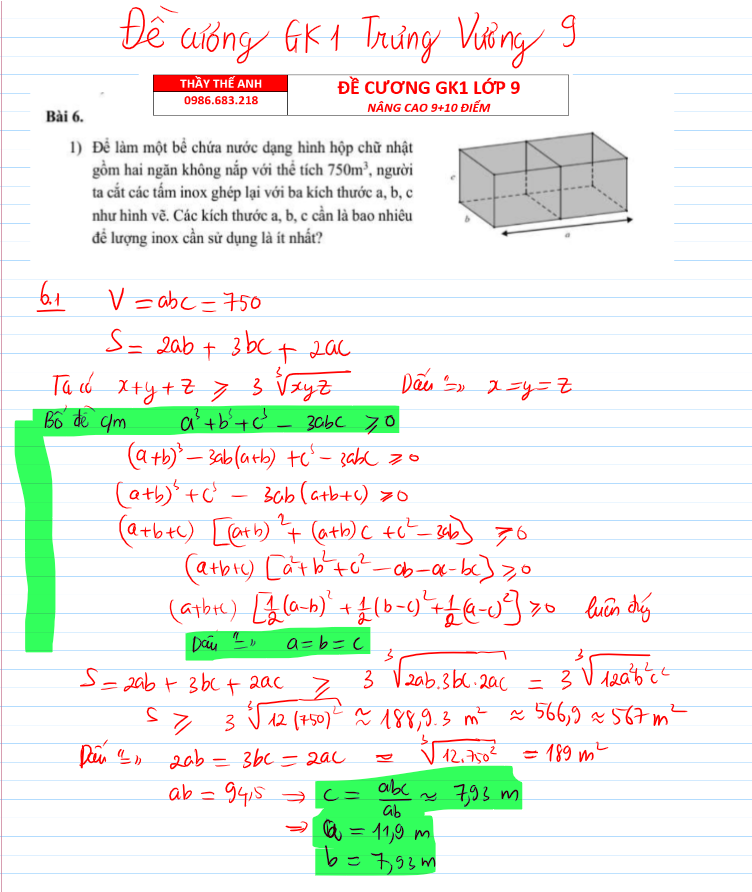 Đề cương GK1 Trưng Vương 9
THẦY THẾ ANH
0986.683.218
ĐỀ CƯƠNG GK1 LỚP 9
NÂNG CAO 9+10 ĐIỂM
Bài 6.
1) Để làm một bể chứa nước dạng hình hộp chữ nhật
gồm hai ngăn không nắp với thể tích 750m³, người
ta cắt các tấm inox ghép lại với ba kích thước a, b, c
như hình vẽ. Các kích thước a, b, c cần là bao nhiêu
để lượng inox cần sử dụng là ít nhất?
c
b
a
6.1 V = abc = 750
S = 2ab + 3bc + 2ac
Ta có x+y+z ≥ 3 ∛xyz Dấu "=" x=y=z
Bổ đề c/m a³+b³+c³ − 3abc ≥ 0
(a+b)³ − 3ab(a+b) + c³ − 3abc ≥ 0
(a+b)³ + c³ − 3ab(a+b+c) ≥ 0
(a+b+c) [(a+b)² + (a+b)c + c² − 3ab] ≥ 0
(a+b+c) [a²+b²+c² − ab − ac − bc] ≥ 0
(a+b+c) [1/2(a−b)² + 1/2(b−c)² + 1/2(a−c)²] ≥ 0 luôn đúng
Dấu "=" a = b = c
S = 2ab + 3bc + 2ac ≥ 3 ∛2ab.3bc.2ac = 3 ∛12a²b²c²
S ≥ 3 ∛12(750)² ≈ 188,9.3 m² ≈ 566,9 ≈ 567 m²
Dấu "=" 2ab = 3bc = 2ac = ∛12.750² = 189 m²
ab = 94,5 ⇒ c = abc/ab ≈ 7,93 m
⇒ a = 11,9 m
b = 7,93 m